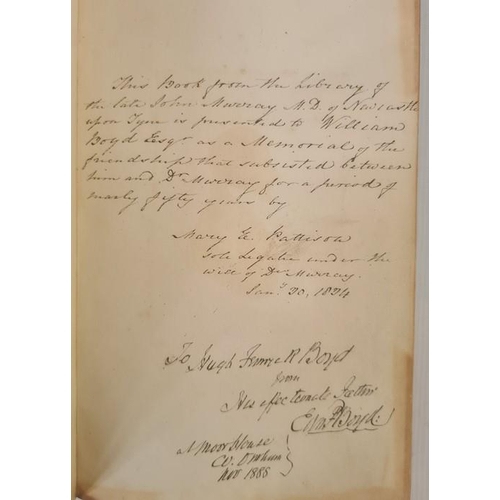 This Book from the Library of
the late John Murray M.D. of Newcastle
upon Tyne is presented to William
Boyd Esqr as a Memorial of the
friendship that subsisted between
him and Dr Murray for a period of
nearly fifty years by
Mary E. Pattison
sole Legatee under the
will of Dr Murray.
Jany 30, 1834
To Hugh Fenwick Boyd
from
His affectionate Father
Edmd Boyd:
at Moor House
Co. Durham
Nov 1888